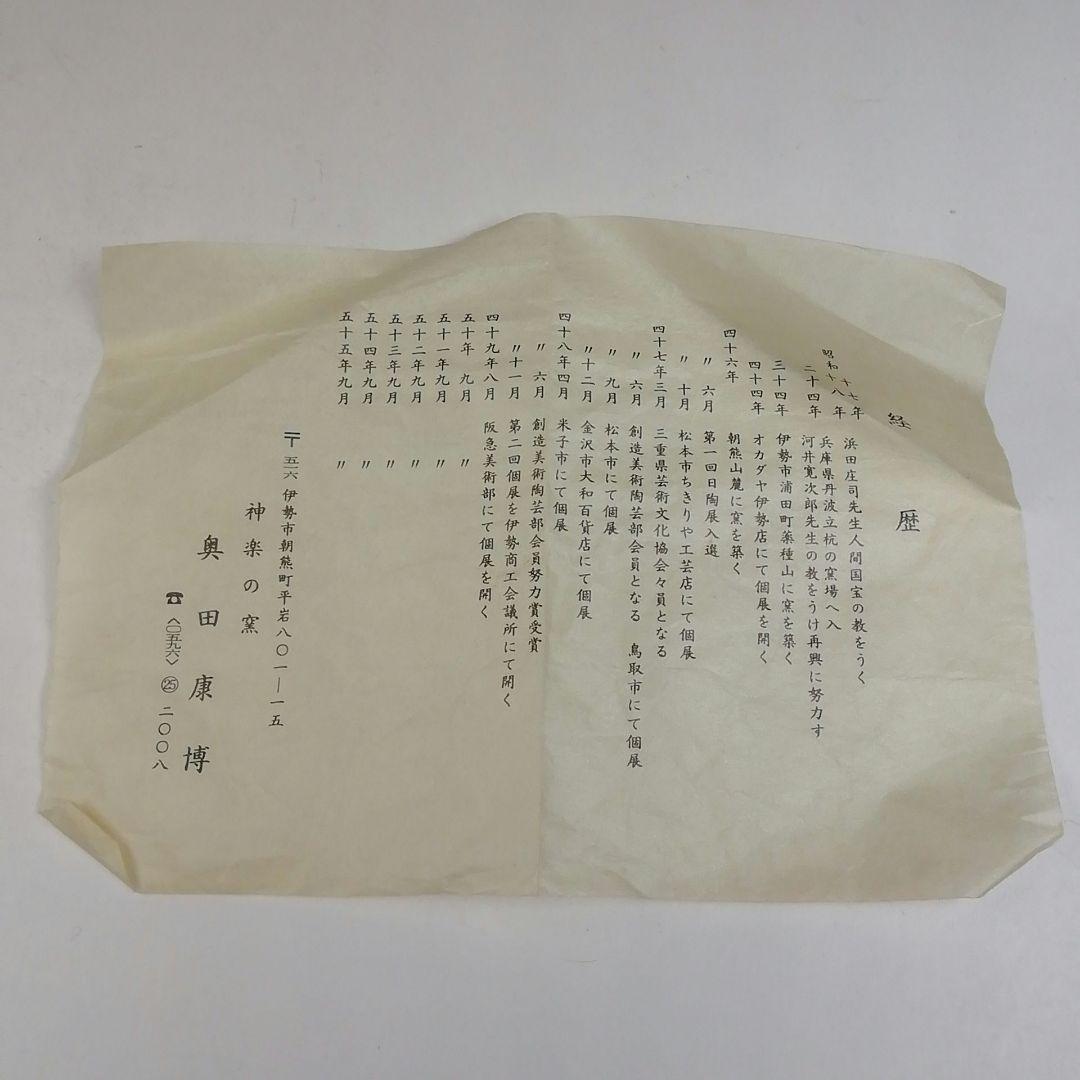 経歴
昭和十七年 浜田庄司先生人間国宝の教をうく
十八年 兵庫県丹波立杭の窯場へ入
二十四年 河井寛次郎先生の教をうけ再興に努力す
三十四年 伊勢市浦田町薬種山に窯を築く
四十四年 オカダヤ伊勢店にて個展を開く
四十六年 朝熊山麓に窯を築く
〃 六月 第一回日陶展入選
〃 十月 松本市ちきりや工芸店にて個展
四十七年三月 三重県芸術文化協会々員となる
〃 六月 創造美術陶芸部会員となる 鳥取市にて個展
〃 九月 松本市にて個展
〃十二月 金沢市大和百貨店にて個展
四十八年四月 米子市にて個展
〃 六月 創造美術陶芸部会員努力賞受賞
〃十一月 第二回個展を伊勢商工会議所にて開く
四十九年八月 阪急美術部にて個展を開く
五十年 九月 〃
五十一年九月 〃
五十二年九月 〃
五十三年九月 〃
五十四年九月 〃
五十五年九月 〃
〒五一六 伊勢市朝熊町平岩八〇一―一五
神楽の窯
奥田康博
☎〈〇五九六〉㉕二〇〇八